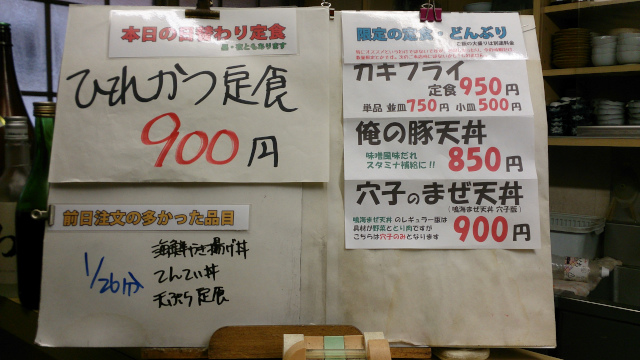 本日の日替わり定食
昼・夜ともあります
ひれかつ定食
900円
前日注文の多かった品目
1/26分
海鮮かき揚げ丼
てんてい丼
天ぷら定食
限定の定食・どんぶり
ご飯の大盛りは別途料金
カキフライ
定食950円
単品 並皿750円 小皿500円
俺の豚天丼
味噌風味だれ
スタミナ補給に!!
850円
穴子のまぜ天丼
(鳴海まぜ天丼 穴子版)
鳴海まぜ天丼 のレギュラー版は
具材が野菜ととり肉ですが
こちらは穴子のみとなります
900円